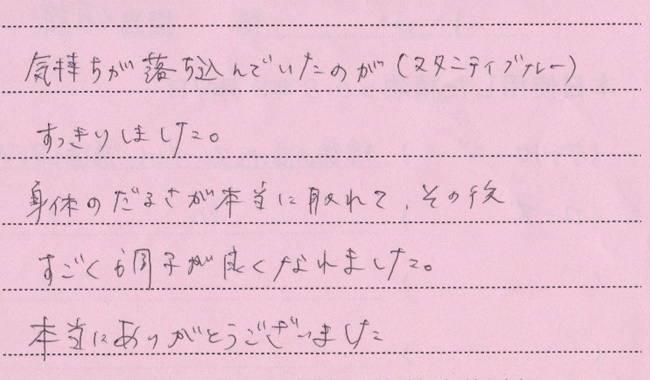 気持ちが落ち込んでいたのが(マタニティブルー)
すっきりしました。
身体のだるさが本当に取れて、その後
すごく調子が良くなれました。
本当にありがとうございました